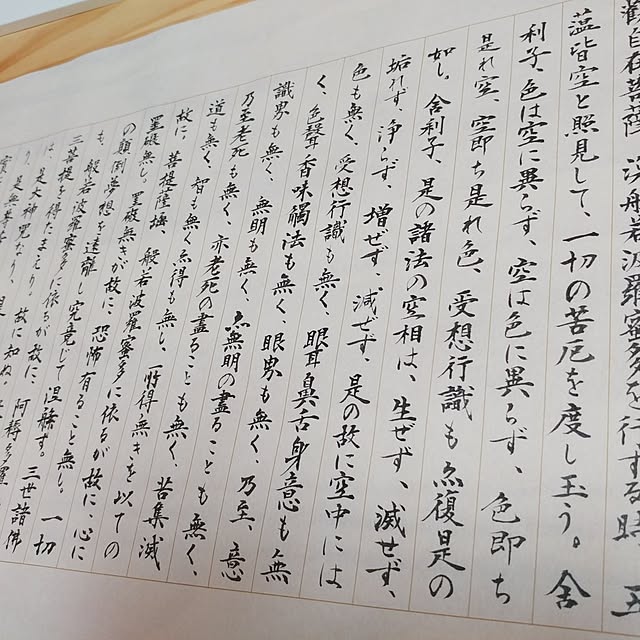 觀自在菩薩 深般若波羅蜜多を行ずる時 五
蘊皆空と照見して、一切の苦厄を度し玉う。舍
利子、色は空に異らず、空は色に異らず、色即ち
是れ空、空即ち是れ色、受想行識も亦復是の
如し。舍利子、是の諸法の空相は、生ぜず、滅せず、
垢れず、浄らず、増ぜず、減ぜず、是の故に空中には
色も無く、受想行識も無く、眼耳鼻舌身意も無
く、色聲香味觸法も無く 眼界も無く、乃至、意
識界も無く、無明も無く、無明の盡ることも無く、
乃至老死も無く、亦老死の盡ることも無く、苦集滅
道も無く、智も無く亦得も無し、所得無きを以ての
故に。菩提薩埵 般若波羅蜜多に依るが故に、心に
罣礙無し、罣礙無きが故に、恐怖有ること無し。一切
の顛倒夢想を遠離し究竟じて涅槃す。三世諸佛
も、般若波羅蜜多に依るが故に、阿耨多羅
三菩提を得たまえり。故に知ぬ。
は、是大神咒なり、
り、是無等等